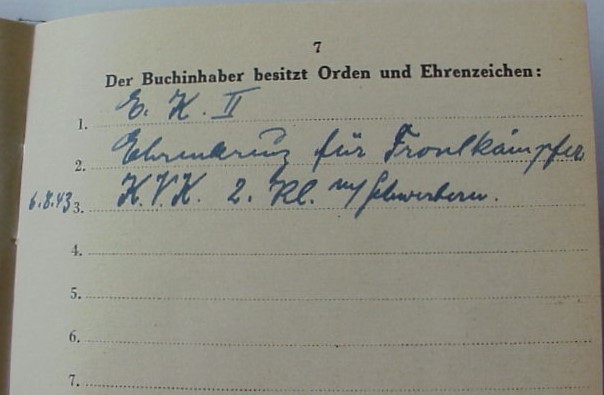 7
Der Buchinhaber besitzt Orden und Ehrenzeichen:
1. E. K. II
2. Ehrenkreuz für Frontkämpfer
6.8.43 3. K.V.K. 2. Kl. m/Schwertern.
4.
5.
6.
7.